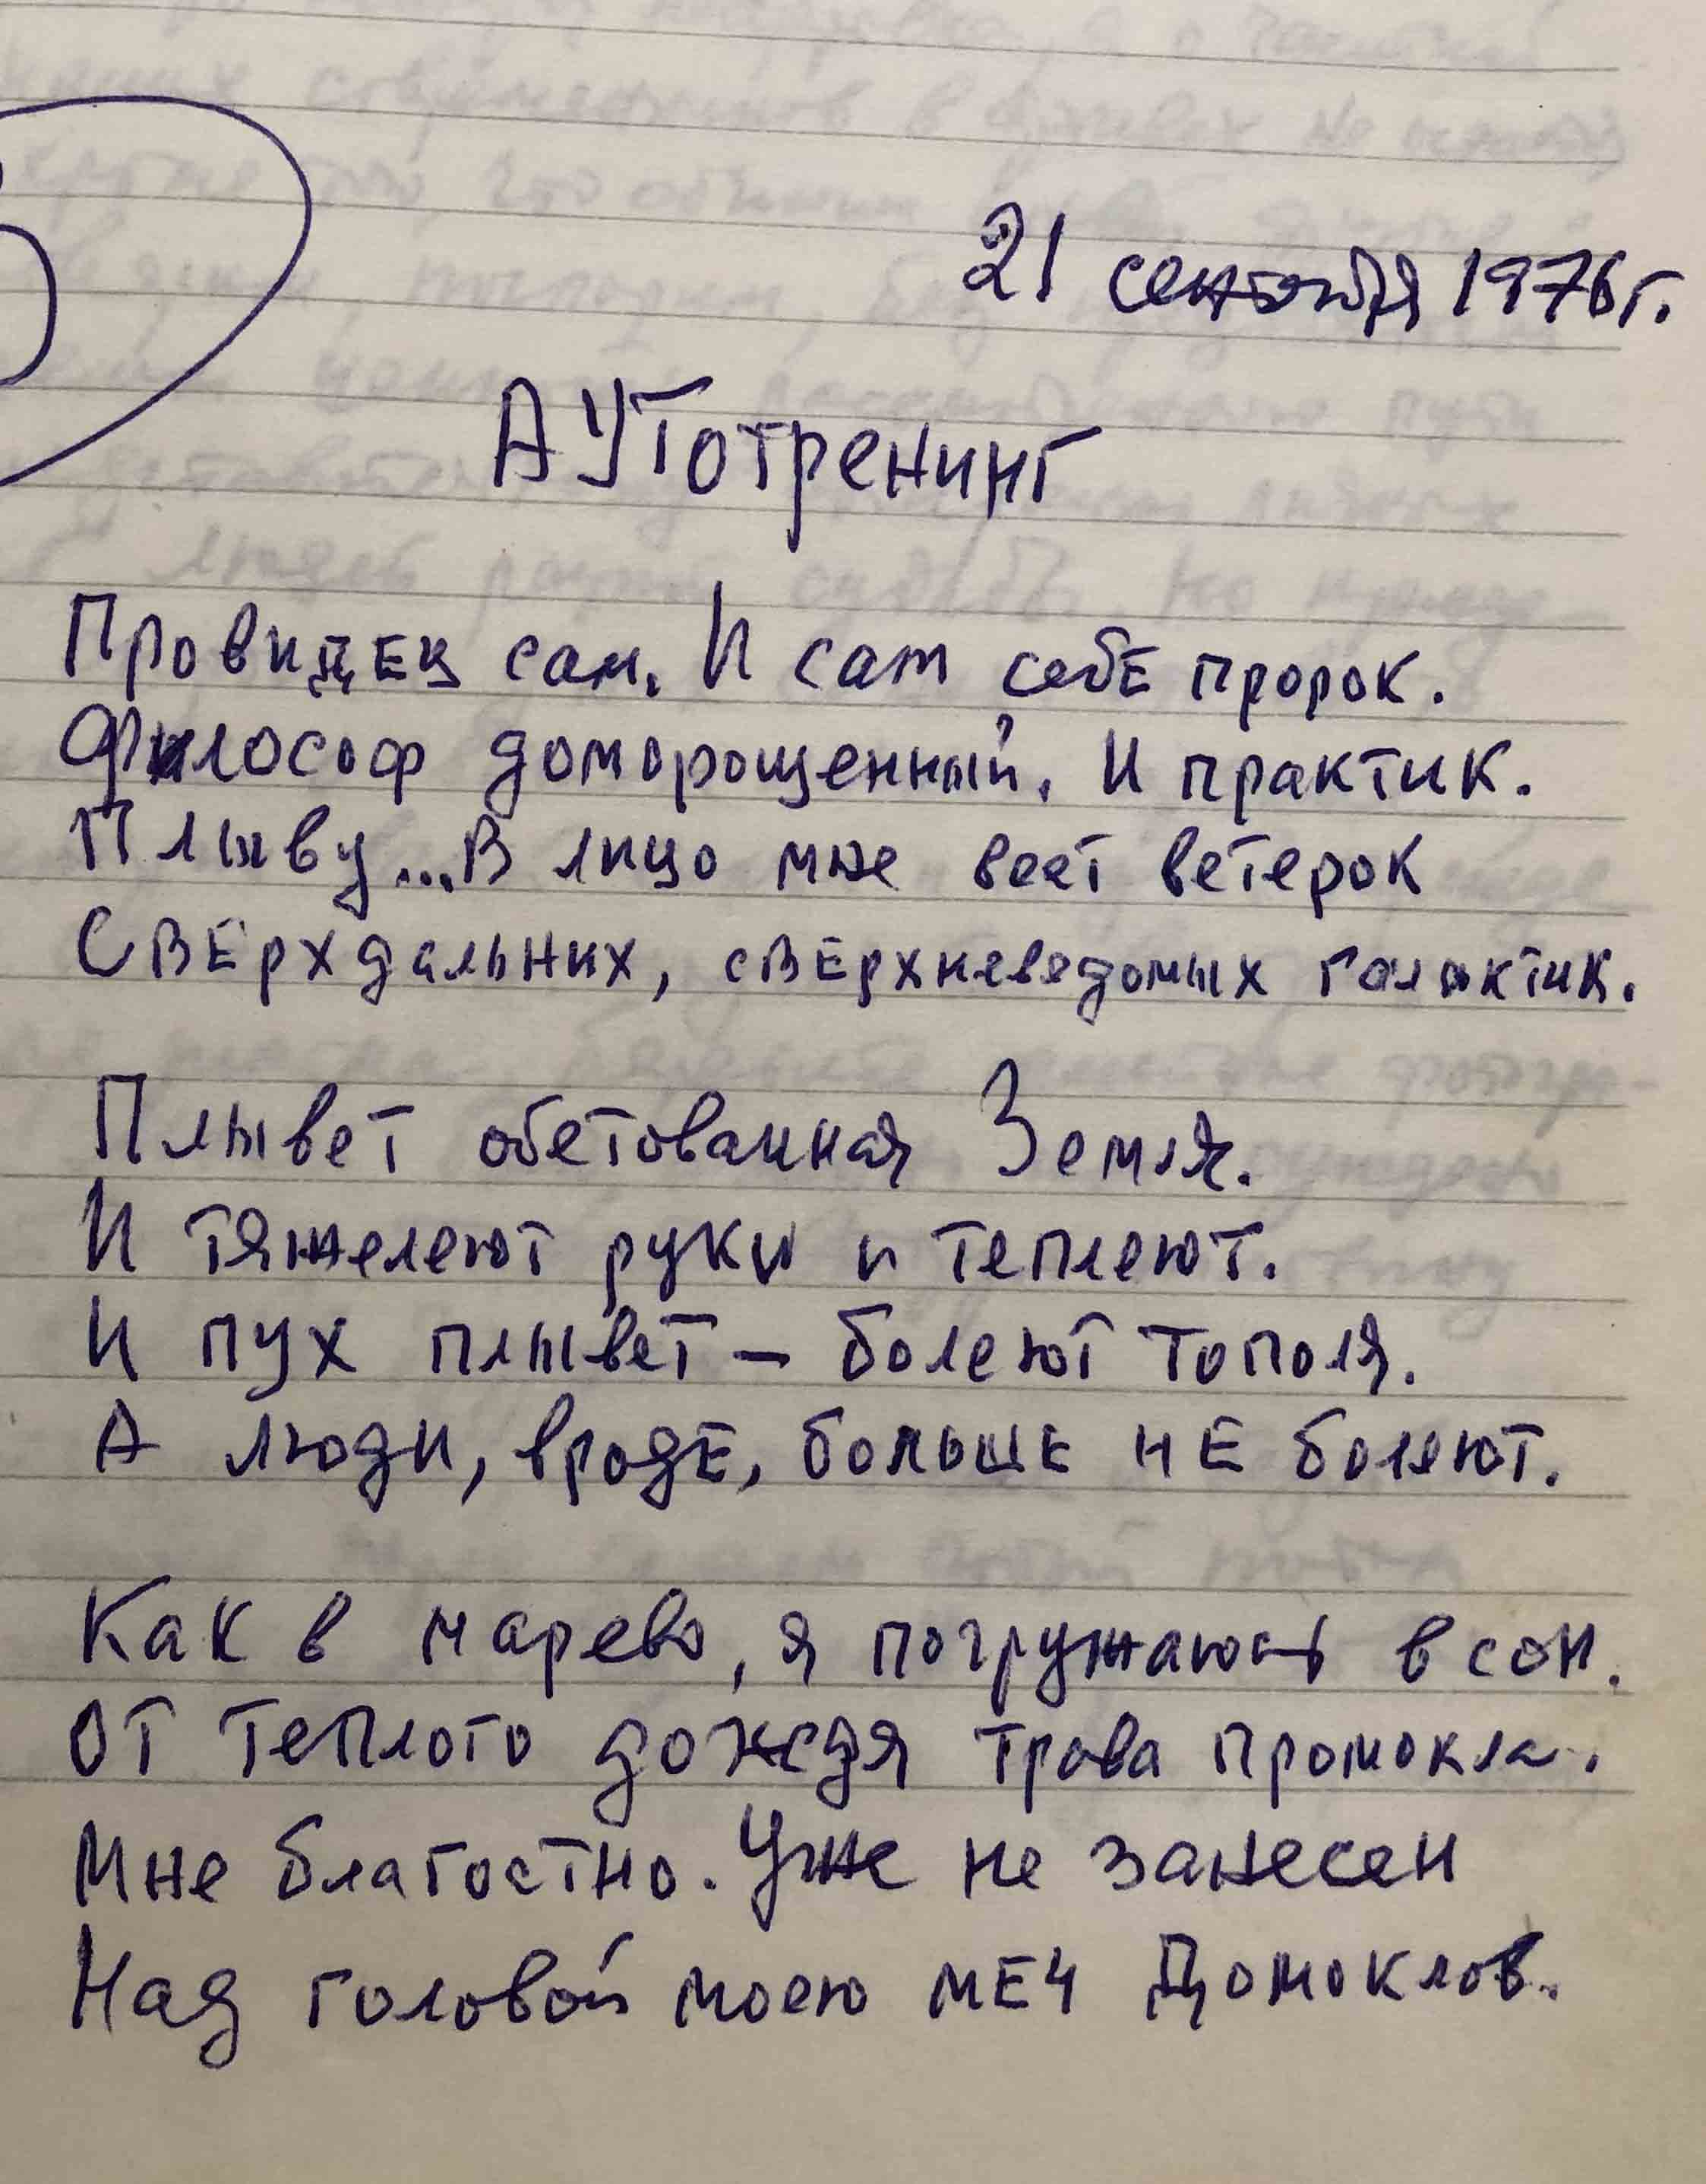 21 сентября 1976 г.
Аутотренинг
Провидец сам. И сам себе пророк.
Философ доморощенный. И практик.
Плыву... В лицо мне веет ветерок
Сверхдальних, сверхневедомых галактик.
Плывет обетованная Земля.
И тяжелеют руки и теплеют.
И пух плывет – болеют тополя.
А люди, вроде, больше не болеют.
Как в марево, я погружаюсь в сон.
От теплого дождя трава промокла.
Мне благостно. Уже не занесен
Над головой моею меч Домоклов.